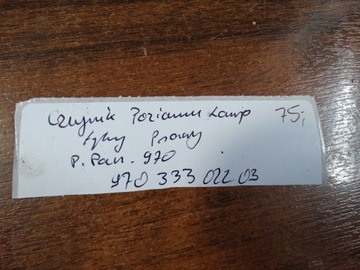 Czujnik Poziomu Lamp 75,-
tylny Prawy
P. Pan. 970
970 333 022 03